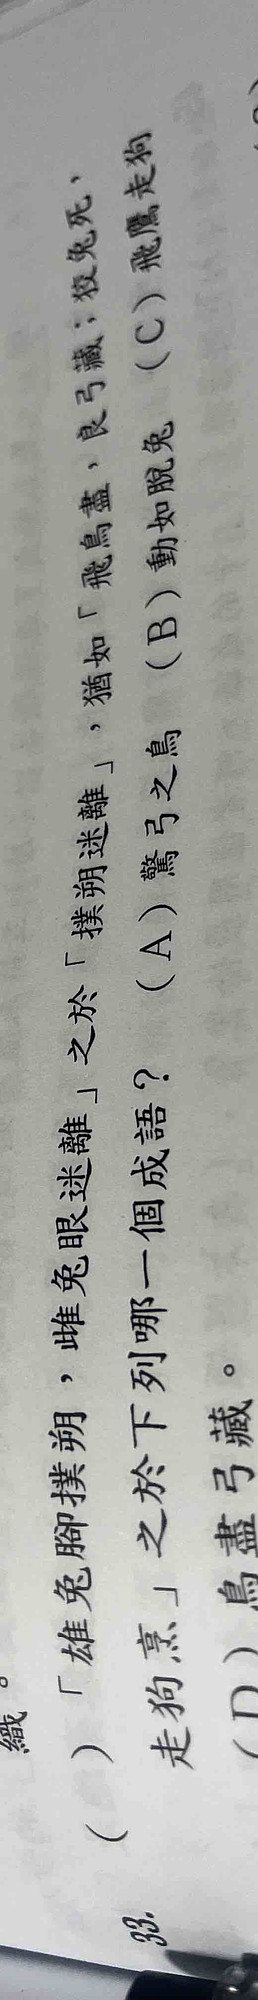 織。
33. (　) 「雄兔腳撲朔，雌兔眼迷離」之於「撲朔迷離」，猶如「飛鳥盡，良弓藏；狡兔死，
走狗烹」之於下列哪一個成語？ (A) 驚弓之鳥 (B) 動如脫兔 (C) 飛鷹走狗
(D) 鳥盡弓藏。